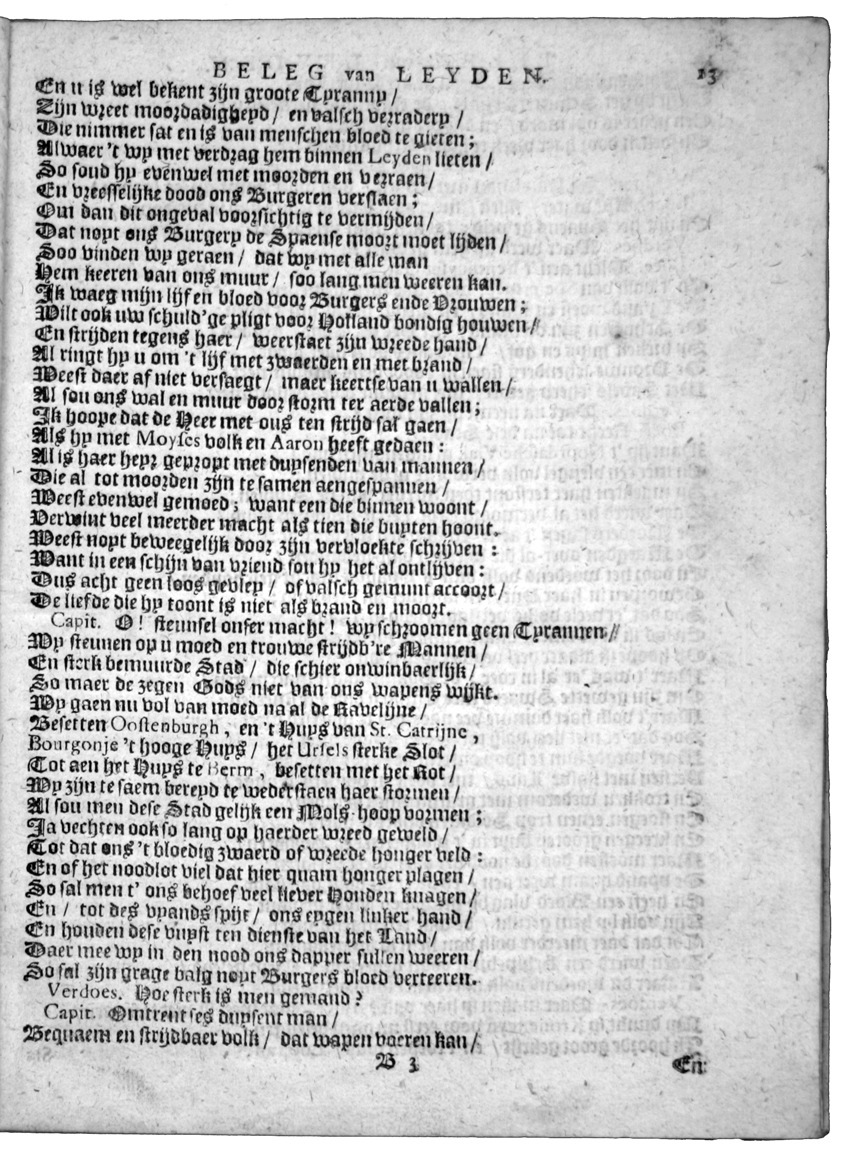 BELEG van LEYDEN. 13
En u is wel bekent zijn groote Tyranny /
Zijn wreet moordadigheyd / en valsch verradery /
Die nimmer sat en is van menschen bloed te gieten ;
Alwaer 't wy met verdrag hem binnen Leyden lieten /
So soud hy evenwel met moorden en verraen /
En vreesselijke dood ons Burgeren verslaen ;
Om dan dit ongeval voorsichtig te vermijden /
Dat noyt ons Burgery de Spaense moort moet lijden /
Soo vinden wy geraen / dat wy met alle man
Hem keeren van ons muur / soo lang men weeren kan.
Ik waeg mijn lijf en bloed voor Burgers ende Vrouwen ;
Wilt ook uw schuld'ge pligt voor Holland bondig houwen /
En strijden tegens haer / weerstaet zijn wreede hand /
Al ringt hy u om 't lijf met zwaerden en met brand /
Weest daer af niet versaegt / maer keertse van u wallen /
Al sou ons wal en muur door storm ter aerde vallen ;
Ik hoope dat de Heer met ons ten strijd sal gaen /
Als hy met Moyses volk en Aaron heeft gedaen :
Al is haer heyr gepropt met duysenden van mannen /
Die al tot moorden zijn te samen aengespannen /
Weest evenwel gemoed ; want een die binnen woont /
Verwint veel meerder macht als tien die buyten hoont.
Weest noyt beweegelijk door zijn vervloekte schrijven :
Want in een schijn van vriend sou hy het al ontlijven :
Dus acht geen loos gevley / of valsch gemunt accoort /
De liefde die hy toont is niet als brand en moort.
Capit. O ! steunsel onser macht ! wy schroomen geen Tyrannen /
Wy steunen op u moed en trouwe strijdb're Mannen /
En sterk bemuurde Stad / die schier onwinbaerlijk /
So maer de zegen Gods niet van ons wapens wijkt.
Wy gaen nu vol van moed na al de Ravelijne /
Besetten Oostenburgh, en 't Huys van St. Catrijne,
Bourgonje 't hooge Huys / het Ursels sterke Slot /
Tot aen het Huys te Berm, besetten met het Rot /
Wy zijn te saem bereyd te wederstaen haer stormen /
Al sou men dese Stad gelijk een Mols-hoop vormen ;
Ja vechten ook so lang op haerder wreed geweld /
Tot dat ons 't bloedig zwaerd of wreede honger veld :
En of het noodlot viel dat hier quam honger plagen /
So sal men t' ons behoef veel liever Honden knagen /
En / tot des vyands spijt / ons eygen linker hand /
En houden dese vuyst ten dienste van het Land /
Daer mee wy in den nood ons dapper sullen weeren /
So sal zijn grage balg noyt Burgers bloed verteeren.
Verdoes. Hoe sterk is men gemand ?
Capit. Omtrent ses duysent man /
Bequaem en strijdbaer volk / dat wapen voeren kan /
B 3 En